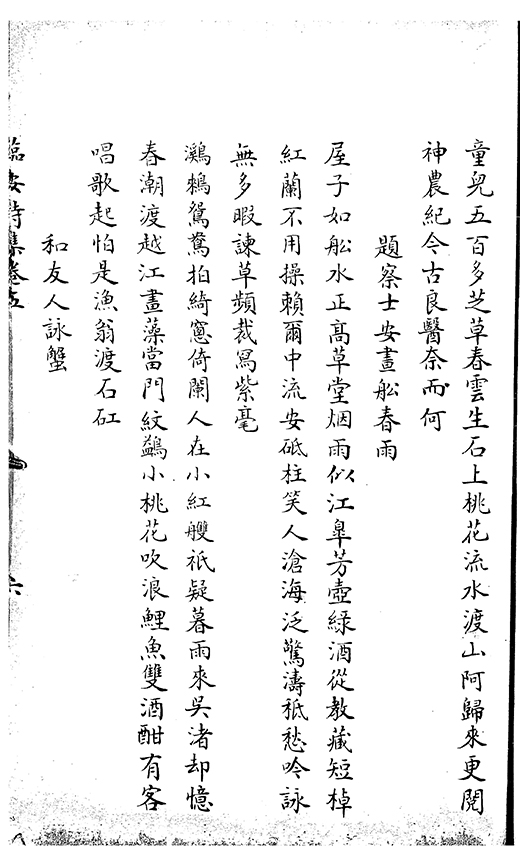 童兒五百多芝草春雲生石上桃花流水渡山阿歸來更閱
神農紀今古良醫奈而何
題察士安畫舩春雨
屋子如舩水正高草堂烟雨似江臯芳壺綠酒從教藏短棹
紅蘭不用操賴爾中流安砥柱笑人滄海泛驚濤秪愁吟詠
無多暇諫草頻裁寫紫毫
鸂鶒鴛鴦拍綺窻倚闌人在小紅艭祇疑暮雨來吳渚却憶
春潮渡越江畫藻當門紋鷁小桃花吹浪鯉魚雙酒酣有客
唱歌起怕是漁翁渡石矼
和友人詠蟹
臨安詩集卷五
六